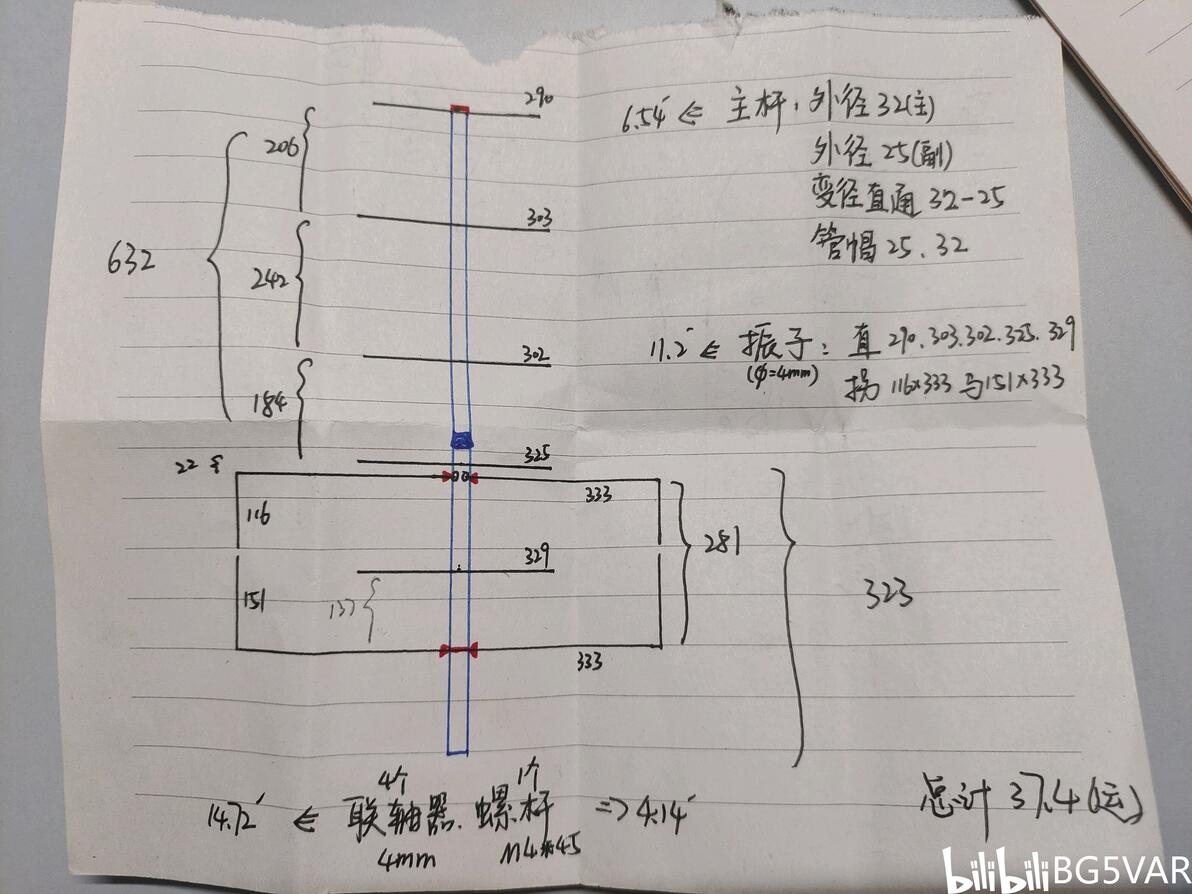 290
206
303
632
242
302
184
325
22
333
116
281
329
151
137
323
333
6.54 ⇐ 主杆, 外径32(主)
外径 25(副)
变径直通 32-25
管帽 25、32
11.2 ⇐ 振子: 直 290.303.302.325.329
(φ=4mm) 拐 116×333 与151×333
4个 1个
14.72 ⇐ 联轴器、螺杆 ⇒ 4.14
4mm M4*45
总计 37.4(运)
bilibili BG5VAR